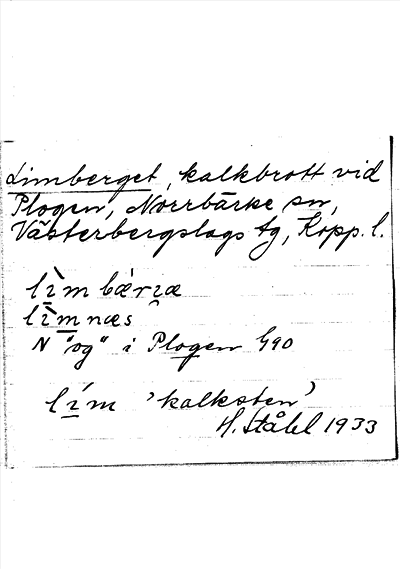 Limberget, kalkbrott vid
Plogen, Norrbärke sn,
Västerbergslags tg, Kopp. l.
lìm bǽrɪæ
lìmnæs
N "og" i Plogen G90
lím 'kalksten'
H. Ståhl 1933